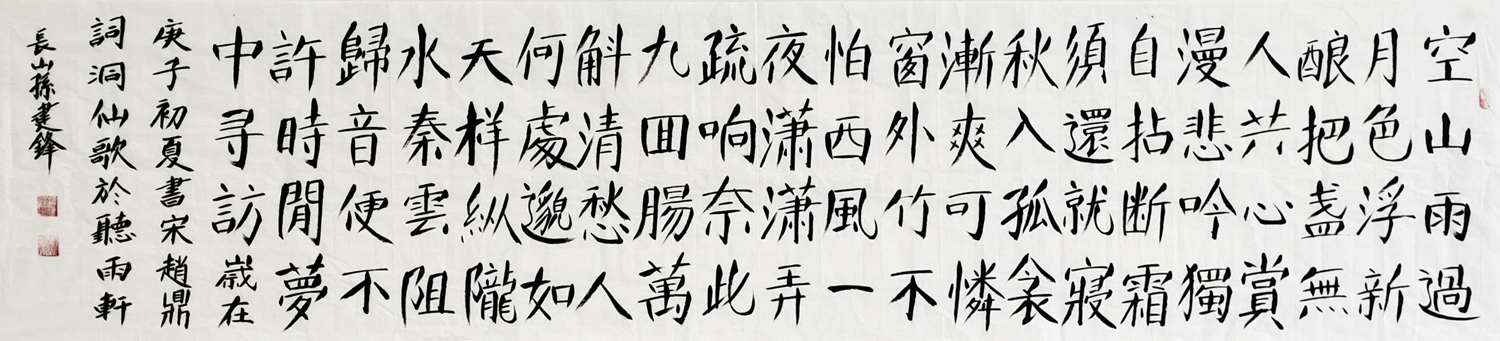 空山雨過
月色浮新
酿把盏無
人共心賞
漫悲吟獨
自拈断霜
須還就寢
秋入孤衾
漸爽可憐
窗外竹不
怕西風一
夜潇潇弄
疏响奈此
九回腸萬
斛清愁人
何處邈如
天样纵隴
水秦雲阻
歸音便不
許時閒夢
中寻訪歲在
庚子初夏書宋趙鼎
詞洞仙歌於聽雨軒
長山孫建鋒